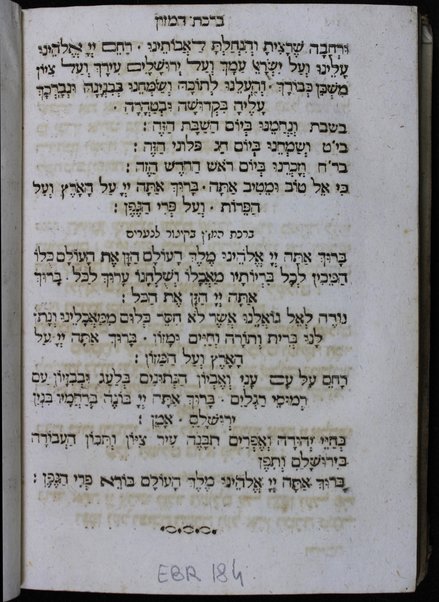 ברכת המזון
וּרְחָבָה שֶׁרָצִיתָ וְהִנְחַלְתָּ לַאֲבוֹתֵינוּ · רַחֵם יְיָ אֱלֹהֵינוּ
עָלֵינוּ וְעַל יִשְׂרָאֵל עַמֶּךָ וְעַל יְרוּשָׁלַיִם עִירֶךָ וְעַל צִיּוֹן
מִשְׁכַּן כְּבוֹדֶךָ · וְהַעֲלֵנוּ לְתוֹכָהּ וְשַׂמְּחֵנוּ בְּבִנְיָנָהּ וּנְבָרֶכְךָ
עָלֶיהָ בִּקְדֻשָּׁה וּבְטָהֳרָה ·
בשבת וְנָחֲמֵנוּ בְּיוֹם הַשַּׁבָּת הַזֶּה :
בי״ט וְשַׂמְּחֵנוּ בְּיוֹם חַג פלוני הַזֶּה :
בר״ח וְזָכְרֵנוּ בְּיוֹם רֹאשׁ הַחֹדֶשׁ הַזֶּה :
כִּי אֵל טוֹב וּמֵטִיב אַתָּה · בָּרוּךְ אַתָּה יְיָ עַל הָאָרֶץ וְעַל
הַפֵּרוֹת · וְעַל פְּרִי הַגֶּפֶן :
ברכת המזון בקיצור לנערים
בָּרוּךְ אַתָּה יְיָ אֱלֹהֵינוּ מֶלֶךְ הָעוֹלָם הַזָּן אֶת הָעוֹלָם כֻּלּוֹ
הַמֵּכִין לְכָל בְּרִיּוֹתָיו מַאֲכָלוֹ וְשֻׁלְחָנוֹ עָרוּךְ לַכֹּל · בָּרוּךְ
אַתָּה יְיָ הַזָּן אֶת הַכֹּל :
נוֹדֶה לְאֵל גּוֹאֲלֵנוּ אֲשֶׁר לֹא חִסֵּר כְּלוּם מִמַּאֲכָלֵינוּ וְנָתַ־
לָנוּ בְּרִית וְתוֹרָה וְחַיִּים וּמָזוֹן · בָּרוּךְ אַתָּה יְיָ עַל
הָאָרֶץ וְעַל הַמָּזוֹן :
רַחֵם עַל עַם עָנִי וְאֶבְיוֹן הַנְּתוּנִים בְּלַעַג וּבְבִזָּיוֹן עִם
רְמוּסֵי רַגְלַיִם · בָּרוּךְ אַתָּה יְיָ בּוֹנֵה בְרַחֲמָיו בִּנְיַן
יְרוּשָׁלַם · אָמֵן :
בְּחַיֵּי יְהוּדָה וְאֶפְרַיִם תִּבָּנֶה עִיר צִיּוֹן וְתִכּוֹן הָעֲבוֹדָה
בִּירוּשָׁלַם
בָּרוּךְ אַתָּה יְיָ אֱלֹהֵינוּ מֶלֶךְ הָעוֹלָם בּוֹרֵא פְּרִי הַגֶּפֶן :
EBR 184